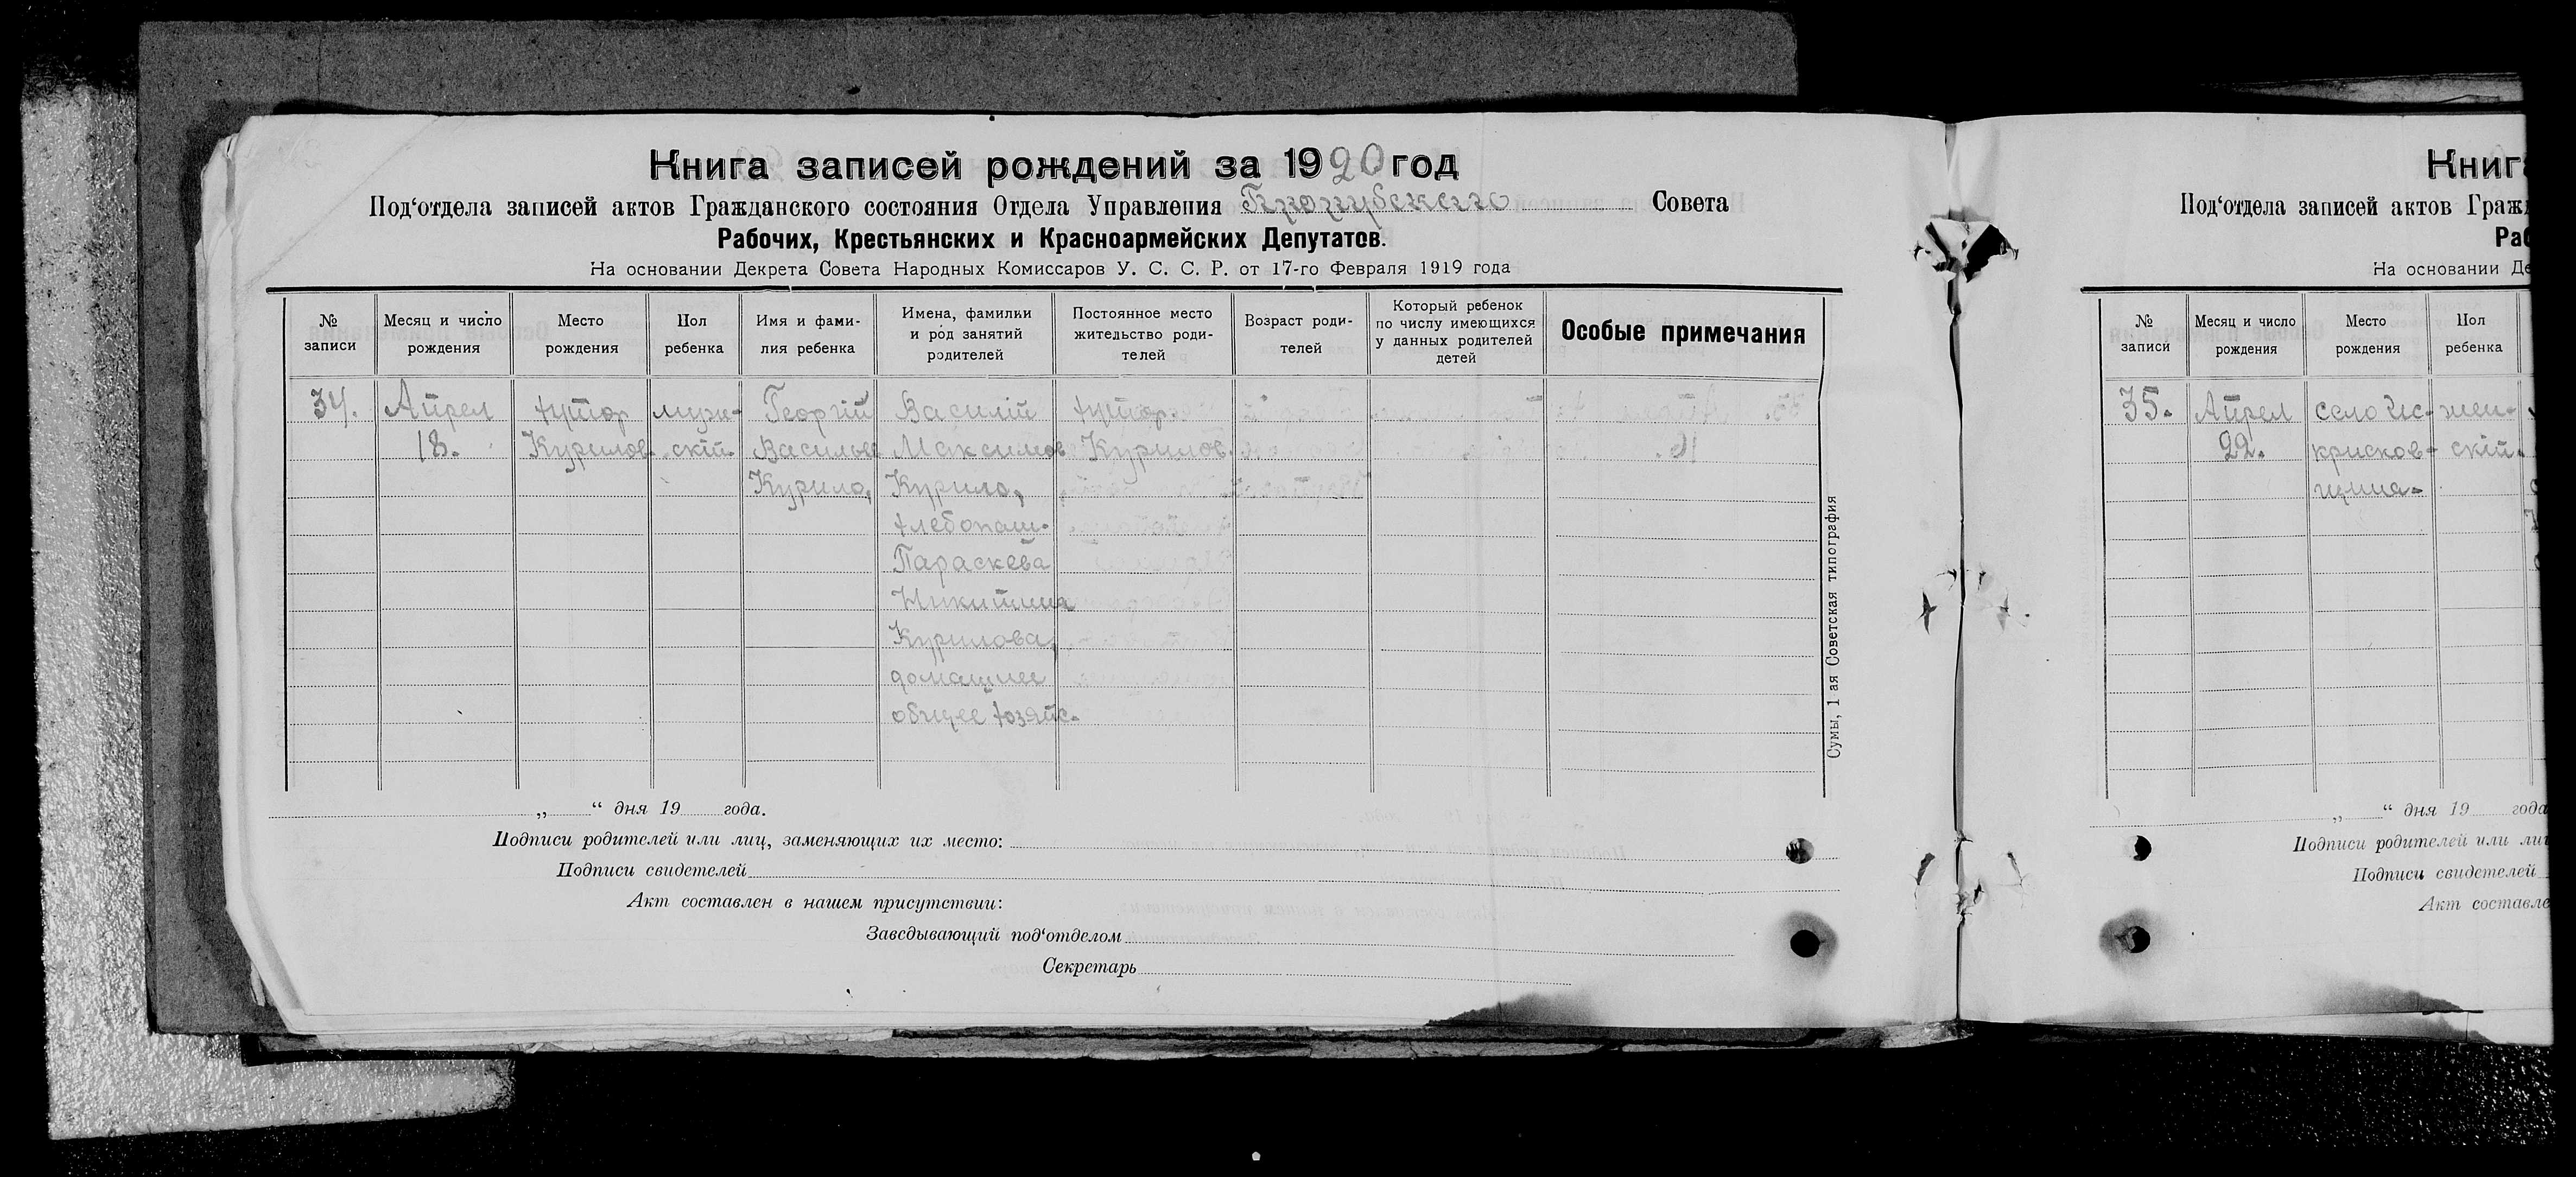 Книга записей рождений за 1920 год
Под‘отдела записей актов Гражданского состояния Отдела Управления Совета
Рабочих, Крестьянских и Красноармейских Депутатов.
На основании Декрета Совета Народных Комиссаров У. С. С. Р. от 17-го Февраля 1919 года
№ записи
Месяц и число рождения
Место рождения
Пол ребенка
Имя и фами-
лия ребенка
Имена, фамилии
и род занятий
родителей
Постоянное место
жительство роди-
телей
Возраст роди-
телей
Который ребенок
по числу имеющихся
у данных родителей
детей
Особые примечания
34. Апрел хутор муж- Георгій Василій хутор.
18. Курилов. скій. Васильев Максимов Курилов.
Курило, Курило,
хлебопаш.
Параскева
Никитина
Курилова,
домашнее
общее хозяйс.
Сумы, 1 ая Советская типография
„ “ дня 19 года.
Подписи родителей или лиц, заменяющих их место:
Подписи свидетелей
Акт составлен в нашем присутствии:
Заведывающий под‘отделом
Секретарь
Книга
Под‘отдела записей актов Граж
Раб
На основании Де
№ записи
Месяц и число рождения
Место рождения
Пол ребенка
35. Апрел село Ис- жен-
22. крисков- скій.
щина.
„ “ дня 19 года
Подписи родителей или лиц
Подписи свидетелей
Акт составле